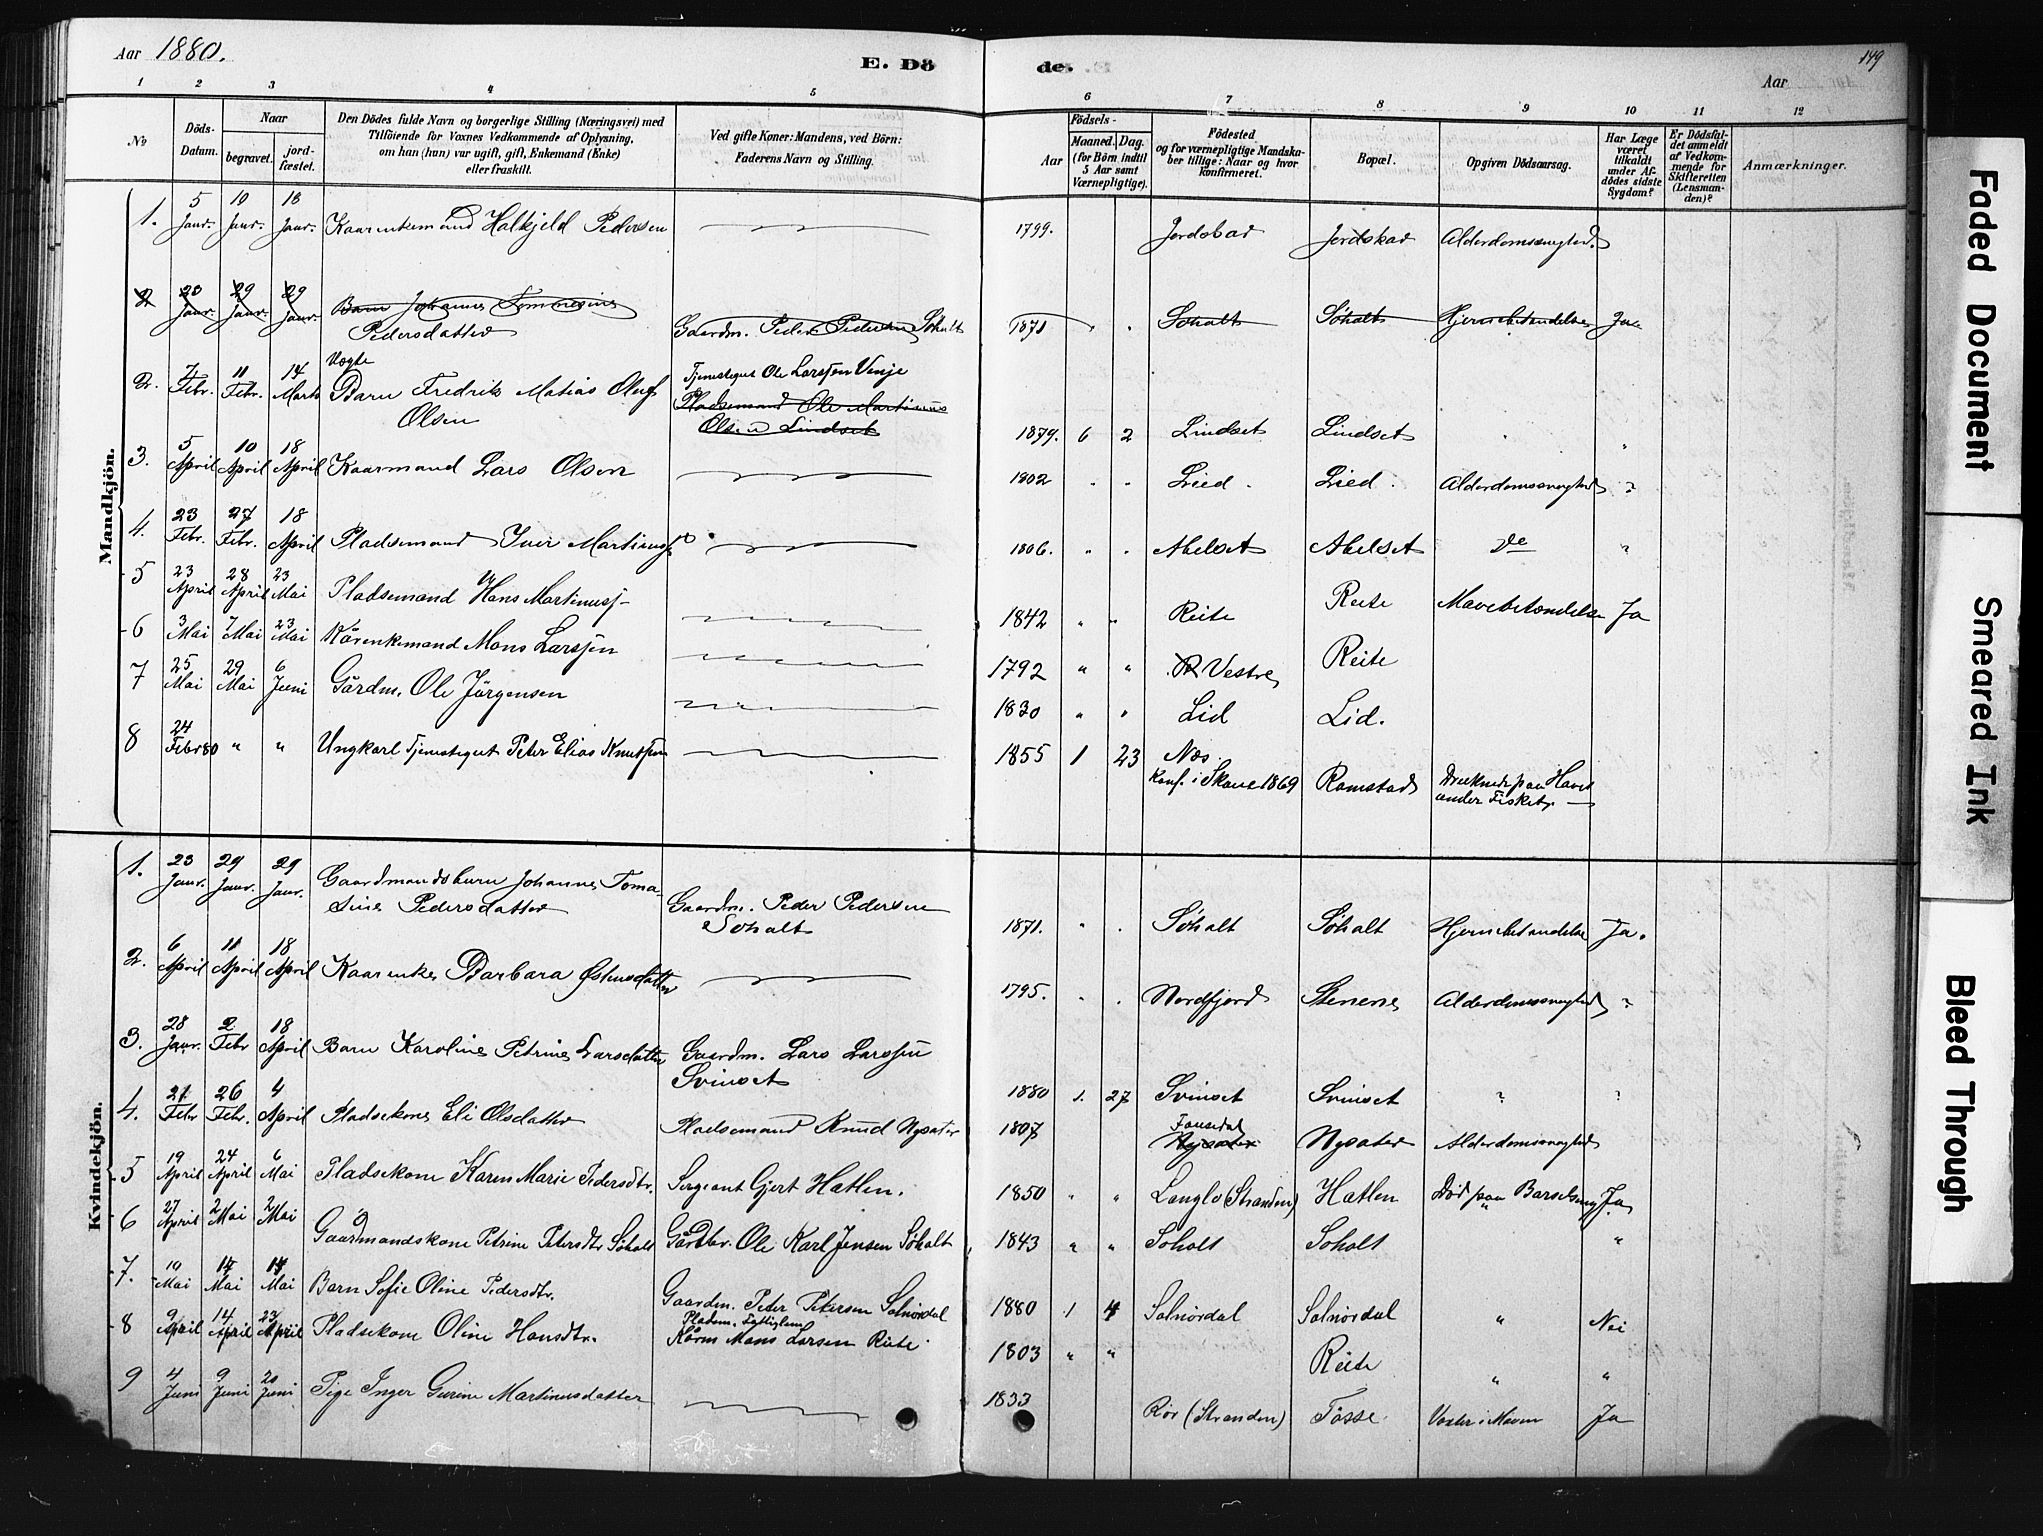 Aar 1880.
E. Dö
de.
149
Aar
1 2 3 4 5 6 7 8 9 10 11 12
No
Döds-
Datum.
Naar
begravet.
jord-
fæstet.
Den Dödes fulde Navn og borgerlige Stilling (Næringsvei) med
Tilföiende for Voxnes Vedkommende af Oplysning,
om han (hun) var ugift, gift, Enkemand (Enke)
eller fraskilt.
Ved gifte Koner: Mandens, ved Börn:
Faderens Navn og Stilling.
Födsels-
Aar
Maaned. Dag.
(for Börn indtil
5 Aar samt
Værnepligtige).
Födested
og for værnepligtige Mandska-
ber tillige: Naar og hvor
konfirmeret.
Bopæl.
Opgiven Dödsaarsag.
Har Læge
været
tilkaldt
under Af-
dödes sidste
Sygdom?
Er Dödsfal-
det anmeldt
af Vedkom-
mende for
Skifteretten
(Lensman-
den)?
Anmærkninger.
Mandkjön.
1. 5 Janr. 10 Janr. 18 Janr. Kaarenkemand Halkjeld Pedersen 1799. Jordskad Alderdomssvaghed ?
2 23 Janr. 29 Janr. 29 Janr. Barn Johanne Tommesine
Pedersdatter Gaardm. Peder Pedersen Söholt 1871 " " Söholt Söholt Hjernebetændelse Ja
2. 7 Febr. 11 Febr. 14 Marts Uægte
Barn Fredrik Matias Oluf
Olsen
Tjenestegut Ole Larssen Venje
Pladsemand Ole Martinus
Olsen Lindset
1879. 6 2 Lindset Lindset "
3. 5 April 10 April 18 April Kaarmand Lars Olsen 1802 " " Lied Lied Alderdomssvaghed ?
4. 23 Febr. 27 Febr. 18 April Pladsemand Iver Martinuss 1806. " " Abelset Abelset do "
5 23 April 28 April 23 Mai Pladsemand Hans Martinuss 1842 " " Reite Reite Mavebetændelse Ja
6 3 Mai 7 Mai 23 Mai Kårenkemand Mons Larssen 1792 " " Vestre Reite
7 25 Mai 29 Mai 6 Juni Gårdm. Ole Jörgensen 1830 " " Lid Lid.
8 24 Febr 80 " " Ungkarl Tjenestegut Peter Elias Knutssen 1855 1 23 Næs
Konf. i Skoue 1869 Ramstad Druknede paa Havet
under Fisket.
Kvindekjön.
1. 23 Janr. 29 Janr. 29 Janr. Gaardmandsbarn Johanne Toma-
sine Pedersdatter Gaardm. Peder Pedersen
Söholt 1871. " . Söholt Söholt Hjernebetændelse Ja.
2. 6 April 11 April 18 April Kaarenke Barbara Østensdatter 1795. " . Nordfjord Stenene Alderdomssvaghed ?
3. 28 Janr. 2 Febr 18 April Barn Karoline Petrine Larsdatter Gaardm. Lars Larssen
Svinset 1880 1. 27 Svinset Svinset ? ?
4. 21 Febr 26 Febr. 4 April Pladsekone Eli Olsdatter Pladsemand Knud Nysæter 1807 Fausedal
Nysæter Nysæter Alderdomssvaghed
5 19 April 24 April 6 Mai Pladsekone Karen Marie Pedersdtr. Sergeant Gjert Hatlen. 1850 " " Langlo (Stranden) Hatlen Död paa Barselseng Ja
6 27 April 2 Mai 2 Mai Gaardmandskone Petrine Petersdtr Söholt Gårdbr. Ole Karl Jensen Söholt 1843 " " Soholt Soholt "
7. 10 Mai 14 Mai 14 Mai Barn Sofie Oline Pedersdtr. Gaardm. Peter Petersen Solnördal 1880 1 4 Solnördal Solnördal " Nei
8 9 April 14 April 23 April Pladsekone Oline Hansdtr. Pladsm. Fattiglem
Kårm Mons Larsen Reite 1803 " " Reite " "
9 4 Juni 9 Juni 20 Juni Pige Inger Gurine Martinusdatter 1833 Rör (Stranden) Tösse Vexter i Maven Ja
Faded Document
Smeared Ink
Bleed Through